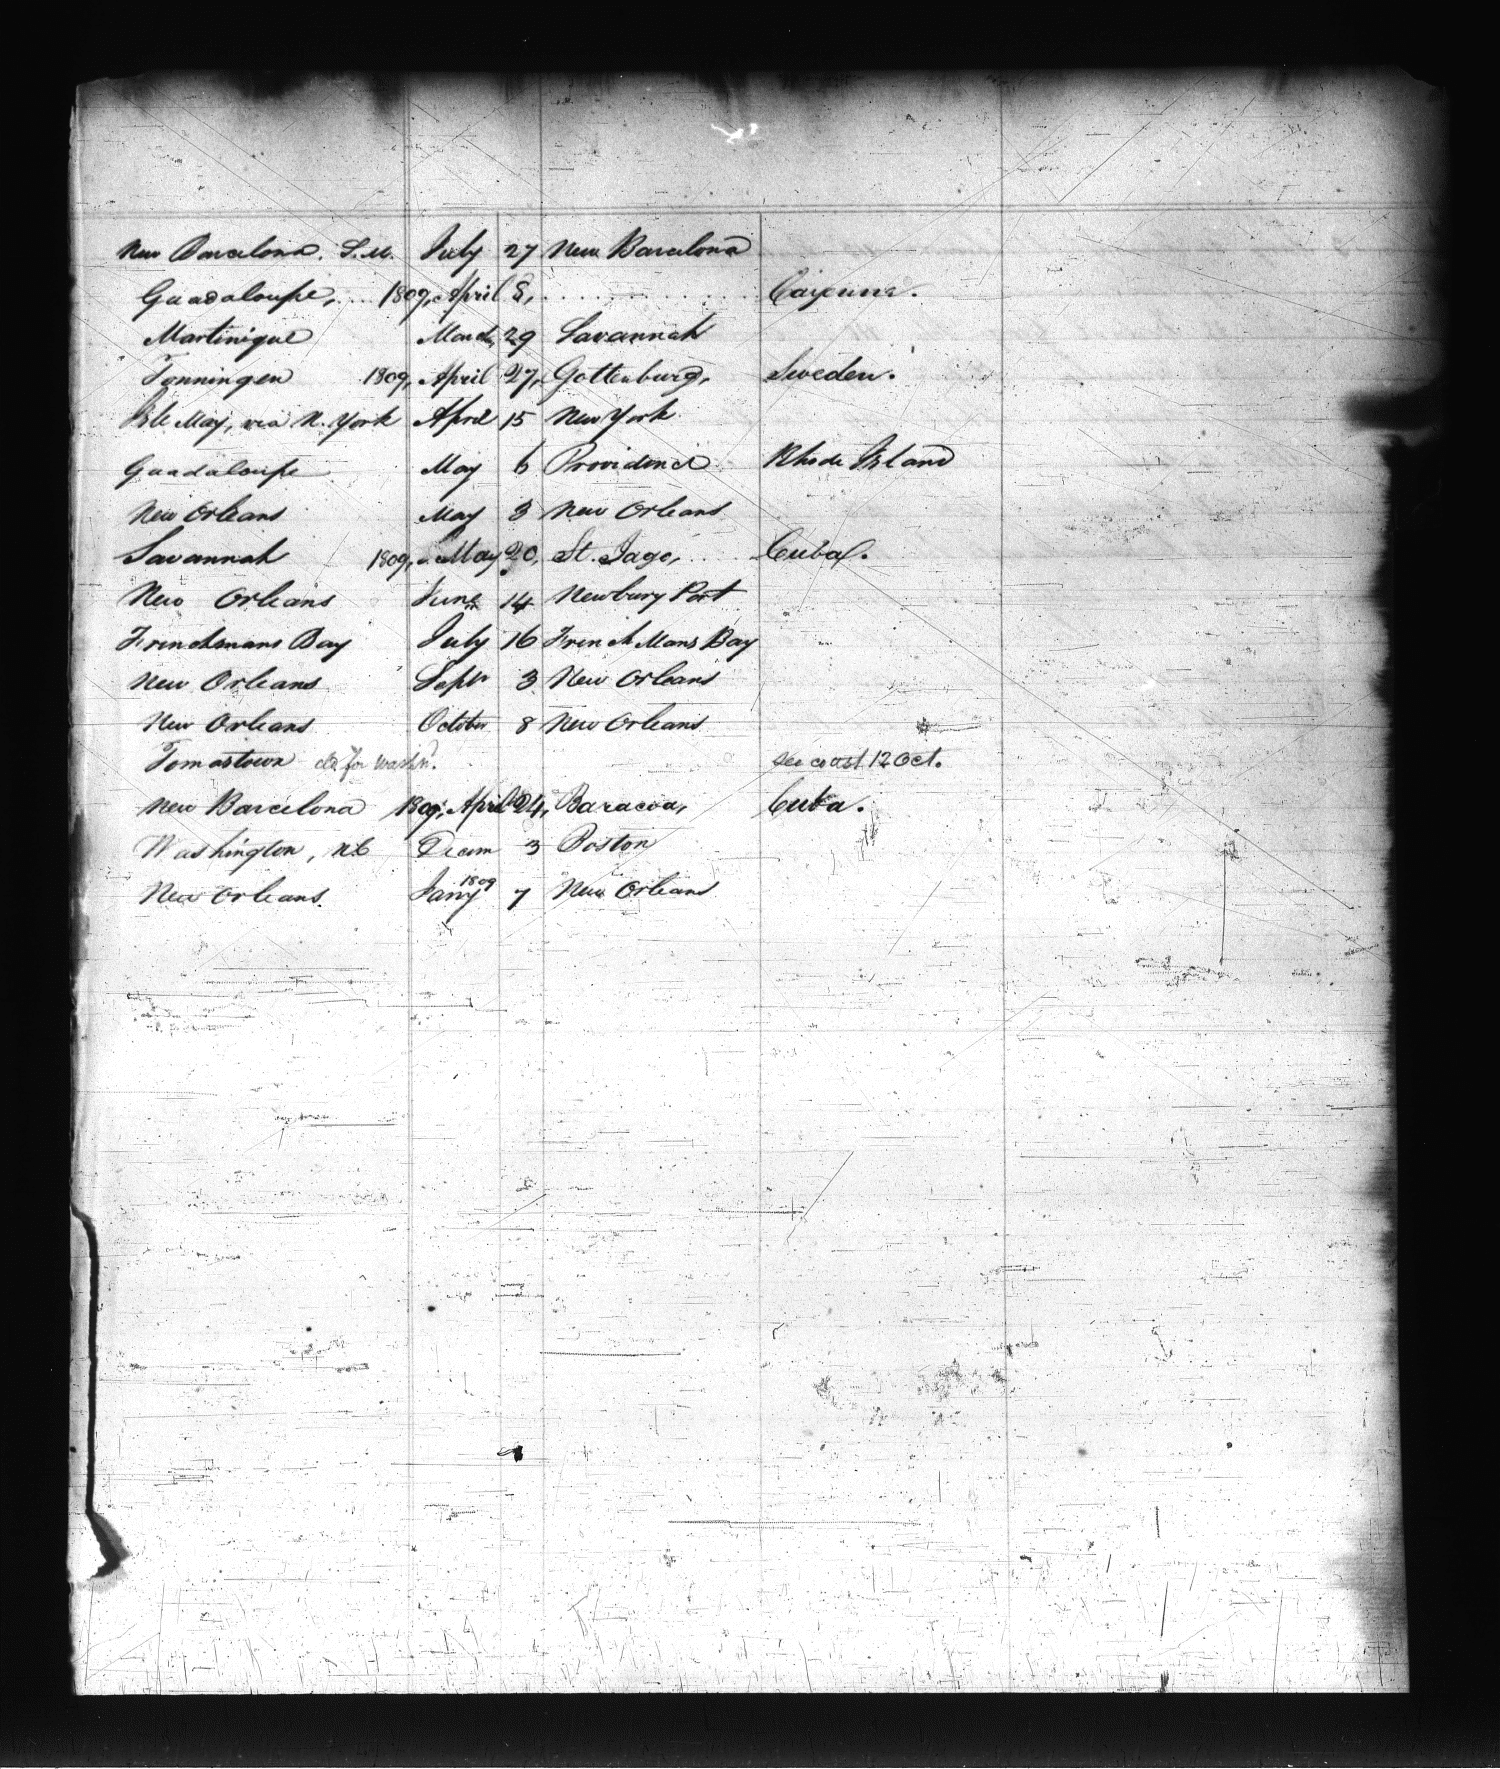 New Barcelona. S.M. July 27 New Barcelona
Guadaloupe, .... 1809, April 8, . . . . . . . . . . Cayenne.
Martinique March 29 Savannah
Tonningen 1809, April 27, Gottenburg, Sweden.
Isle May, via N. York April 15 New York
Guadaloupe May 6 Providence Rhode Island
New Orleans May 3 New Orleans
Savannah 1809, May 20, St. Jago, .... Cuba.
New Orleans June 14 Newbury Port
Frenchmans Bay July 16 French Mans Bay
New Orleans Sepr 3 New Orleans
New Orleans October 8 New Orleans
Tomastown cld for Washn. see coast 12 Oct.
New Barcelona 1809, April 24, Baracoa, Cuba.
Washington, NC Decem 3 Boston
New Orleans. Jany 1809 7 New Orleans